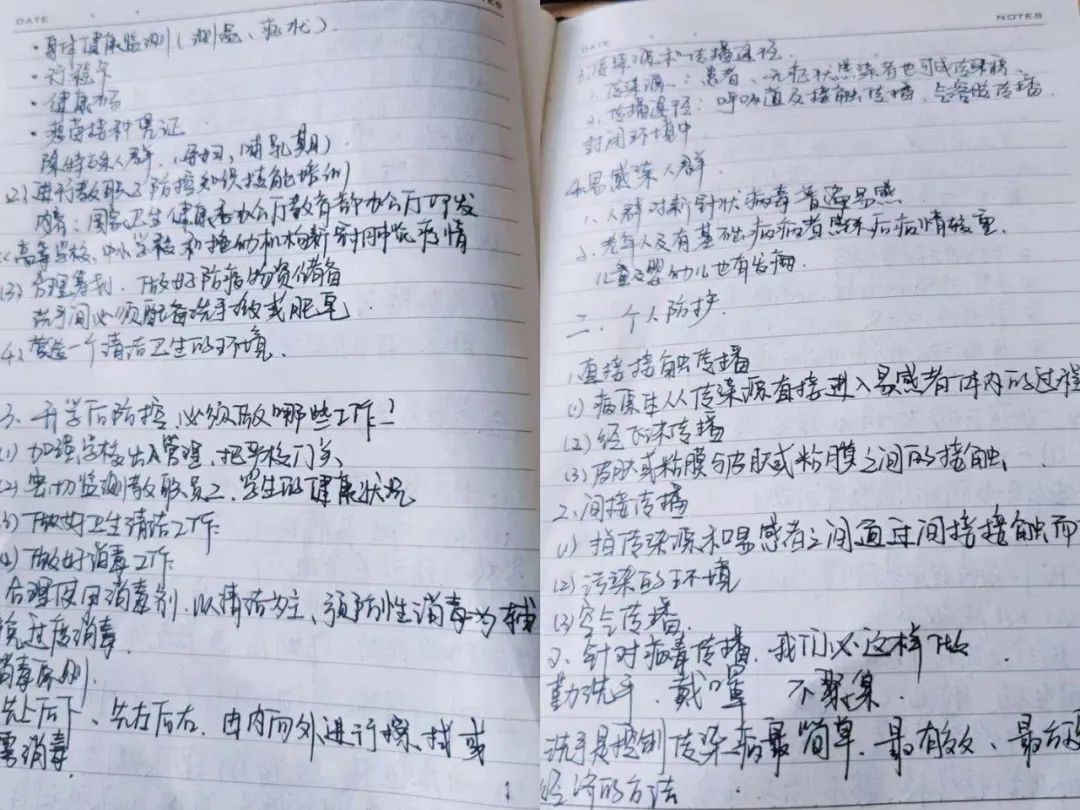 DATE
NOTES
·身体健康监测(测温、症状)
·行程卡
·健康码
·疫苗接种凭证
除特殊人群(孕妇,哺乳期)
(2)进行教职工防控知识技能培训
内容:国家卫生健康委办公厅教育部办公厅印发
《高等学校、中小学校和托幼机构新冠肺炎疫情
(3)合理筹划、做好防疫物资储备
洗手间必须配备洗手液或肥皂.
4、营造一个清洁卫生的环境、
3、开学后防控,必须做哪些工作?
(1)加强学校出入管理、把严校门关
(2)密切监测教职员工、学生的健康状况
(3)做好卫生清洁工作
(4)做好消毒工作
合理使用消毒剂,以清洁为主、预防性消毒为辅
免过度消毒.
消毒原则.
先上后下、先左后右.由内而外进行擦拭或
雾消毒.
DATE
NOTES
传染源和传播途径.
1、传染源:患者、无症状感染者也可成传染源、
2、传播途径:呼吸道及接触传播、气溶胶传播.
封闭环境中
易感染人群
1、人群对新冠状病毒普遍易感
2、老年人及有基础病病者感染后病情较重.
儿童及婴幼儿也有发病.
二、个人防护.
1、直接接触传播
(1)病原生从传染源直接进入易感者体内的过程
(2)经飞沫传播
(3)皮肤或粘膜与皮肤或粘膜之间的接触.
2、间接传播
(1)指传染源和易感者之间通过间接接触而
(2)污染的环境
(3)空气传播.
2、针对病毒传播.我们必这样做.
勤洗手、戴口罩 不聚集.
洗手是控制传染病最简单.最有效、最
经济的方法